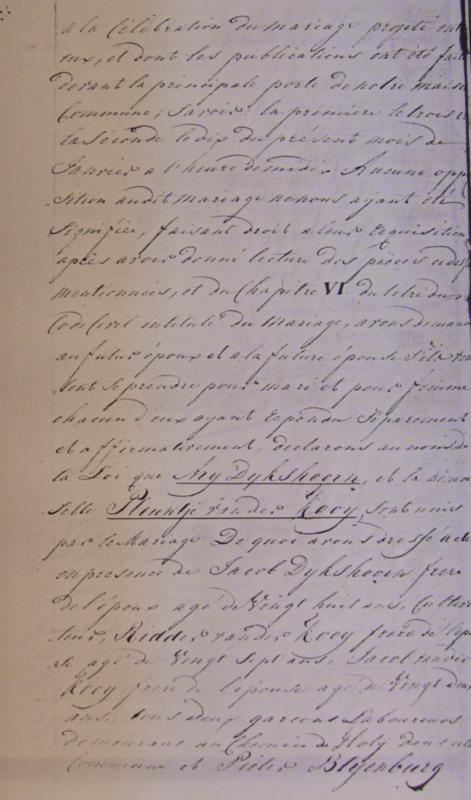 a la Célébration du mariage projeté entr
eux, et dont les publications ont été faite
devant la principale porte de notre maiso
Commune; Savoir: la première le trois et
la Seconde le dix du présent mois de
Janvier a l'heure de midi. Aucune opp
osition audit mariage ne nous ayant été
Signifiée, faisant droit a leur requisition
après avoir donné lecture des pièces
mentionnées, et du Chapitre VI du titre du
Code Civil intitulé du Mariage, avons demand
au futur époux et a la future épouse S'ils
se prendre pour mari et pour femme
chacun d'eux ayant répondu Séparement
et affirmativement, déclarons au nom de
la Loi que Ary Dykshoorn, et la démoi
selle Pleuntje vander Kooy, sont unis
par le Mariage De quoi avons dressé acte
en présence de Jacob Dykshoorn frere
de l'époux agé de Vingt huit ans, Cultiva
teur, Ridder vander Kooy frere de l'épou
se agé de Vingt Sept ans, Jacob vander
Kooy frere de l'épouse agé de Vingt deux
ans, tous deux garçons Laboureurs
demeurans au Chemin de Holy dans cette
Commune et Pieter Blyenburg